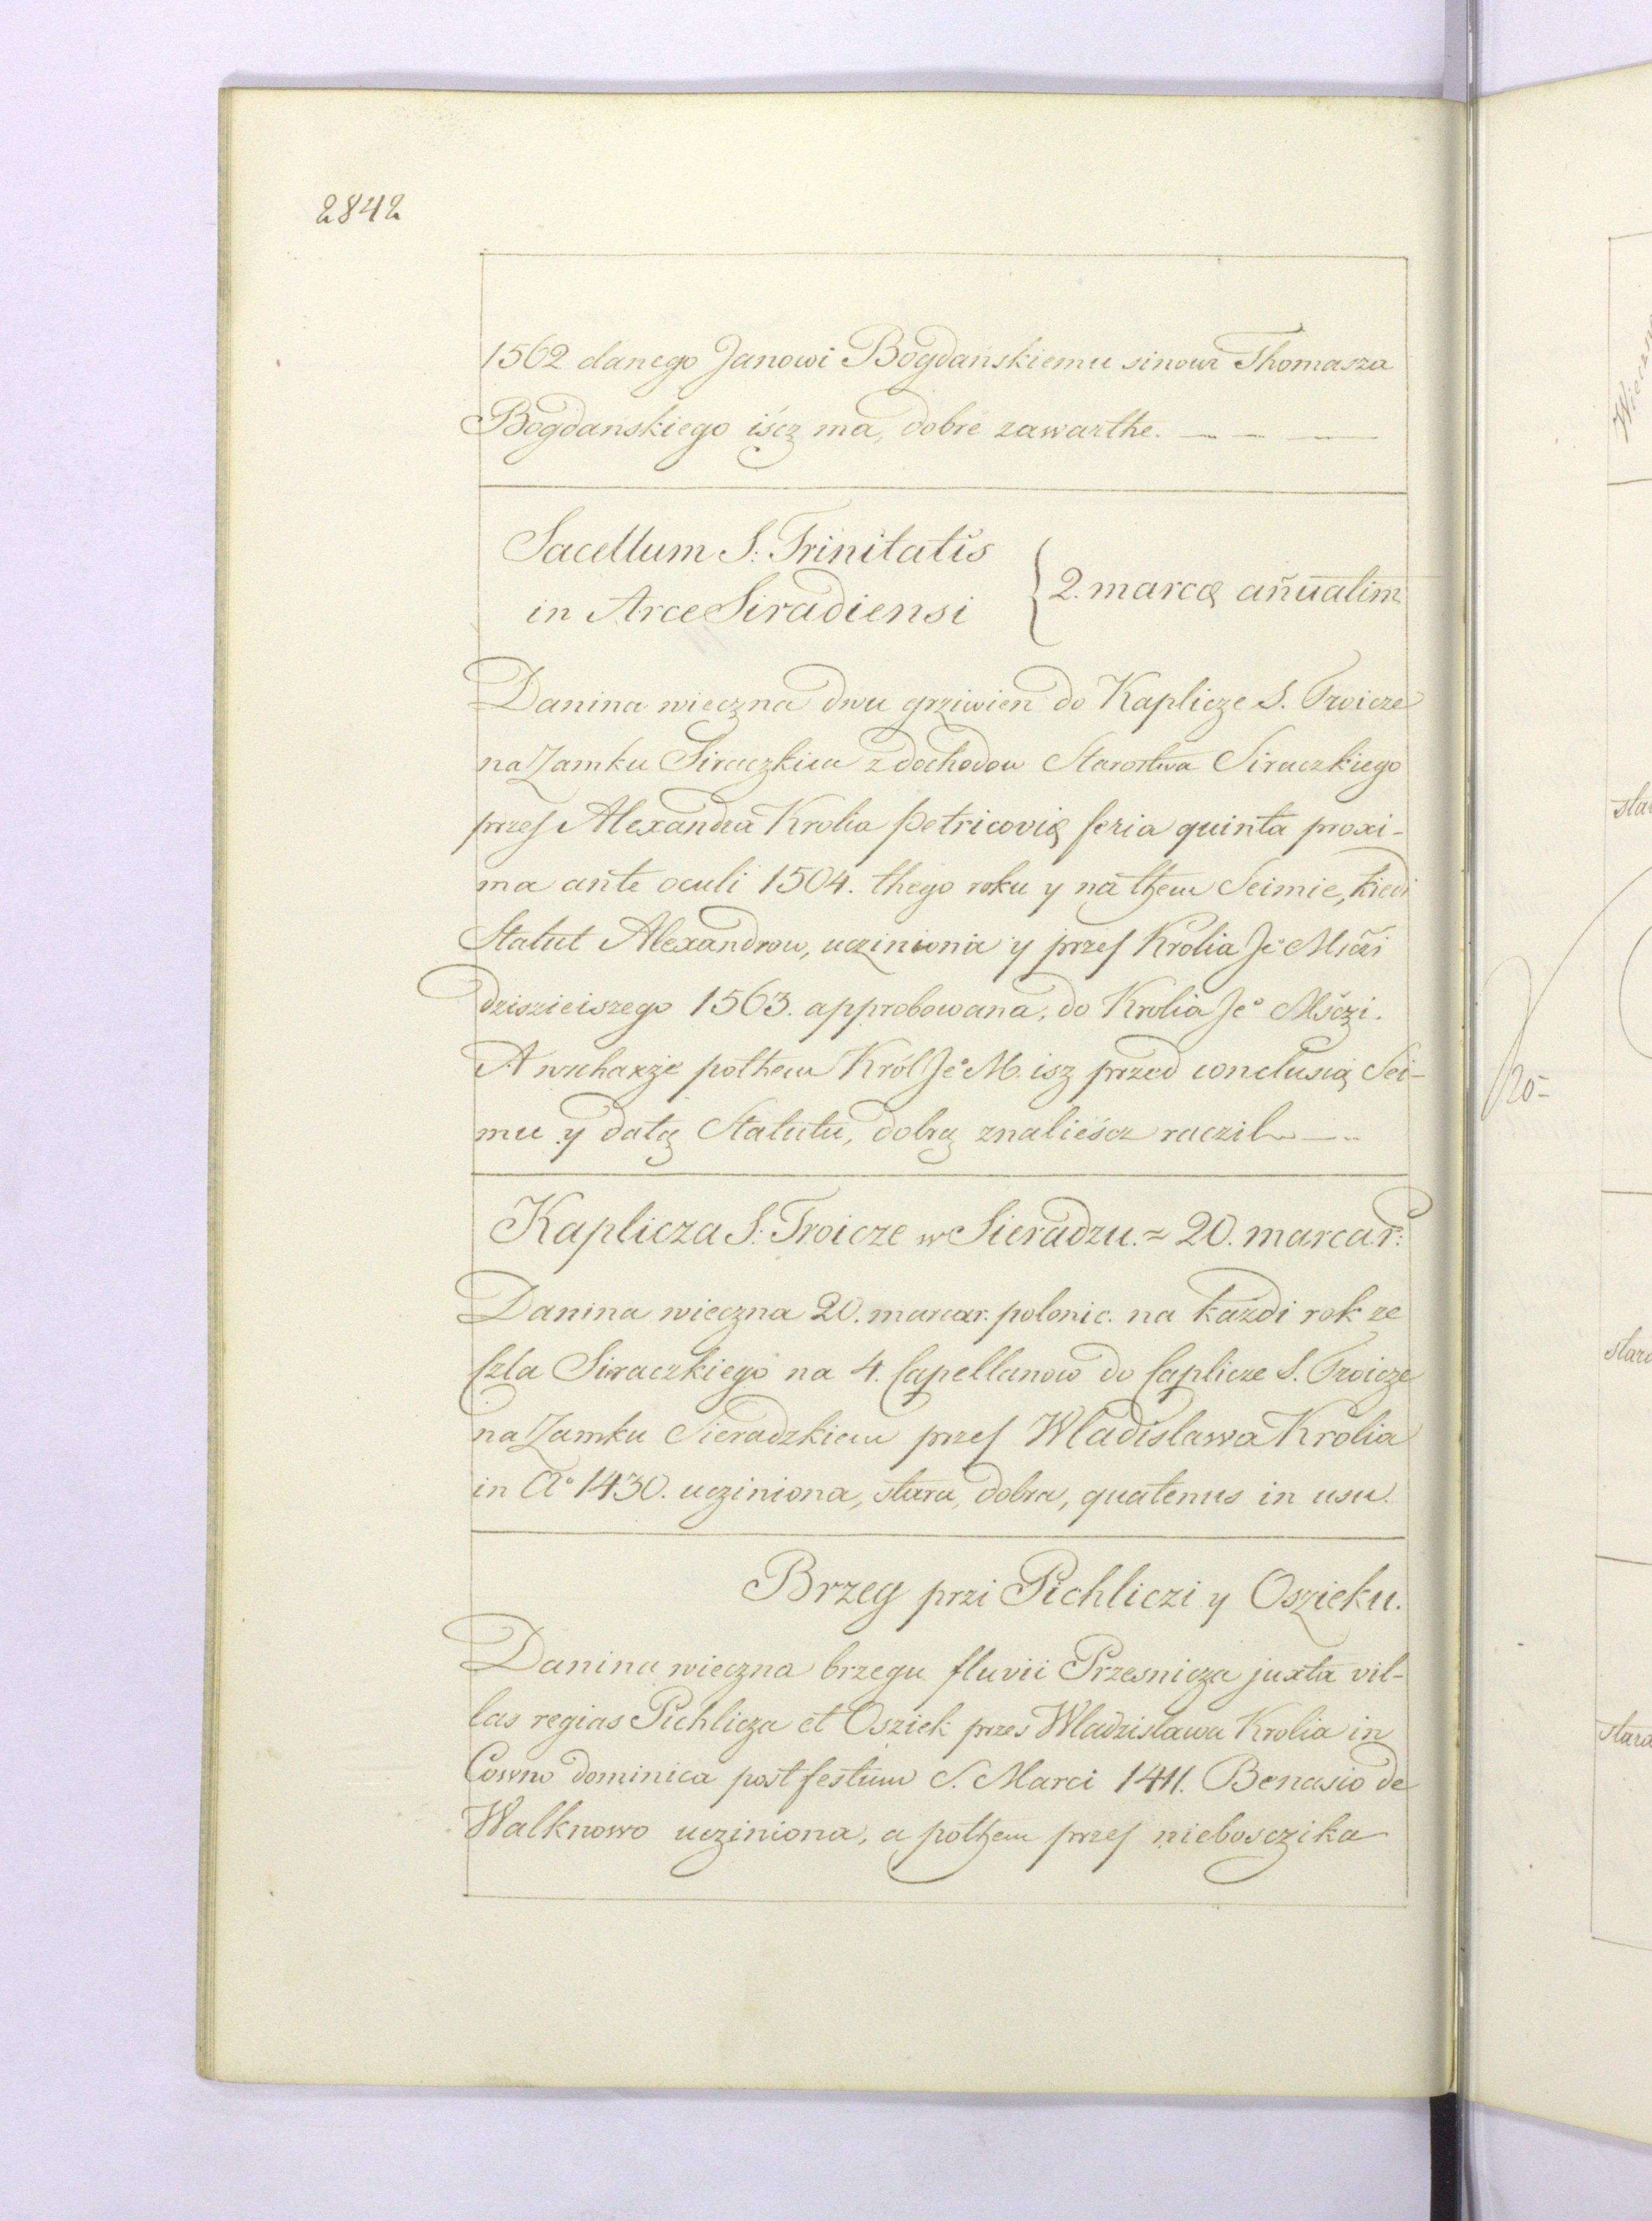 2842
1562 danego Janowi Bogdańskiemu sinowi Thomasza
Bogdańskiego iścz ma, dobré zawarthe.
Sacellum S: Trinitatis
in Arce Siradiensi
2. marcę añualim
Danina wieczna dwu grziwien do Kaplicze S. Troicze
na Zamku Siraczkiem z dochodow Starostwa Siraczkiego
przes Alexandra Krolia Petricovię feria quinta proxi-
ma ante oculi 1504. thego roku y na them Seimie, kiedi
Statut Alexandrow, uczinionia y przes Krolia Jeº Mśczi
dziszieiszego 1563. approbowana, do Krolia Jeº Mśczi.
A wszhakże pothem Król Jeº M. isz przed conclusią Sei-
mu y datą Statutu, dobrą znalieścz raczil
Kaplicza S: Troicze w Sieradzu. = 20. marcar:
Danina wieczna 20. marcar. polonic. na każdi rok ze
Szla Siraczkiego na 4. Capellanow do Caplicze S. Troicze
na Zamku Sieradzkiem przes Wladislawa Krolia
in Aº 1430. ucziniona, stara, dobra, quatenus in usu.
Brzeg przi Pichliczi y Oszieku.
Danina wieczna brzegu fluvii Przesnicza juxta vil-
las regias Pichlicza et Osziek przes Wladzislawa Krolia in
Cowno dominica post festum S. Marci 1411. Benasio de
Walknowo ucziniona, a pothem przes nieboszczika